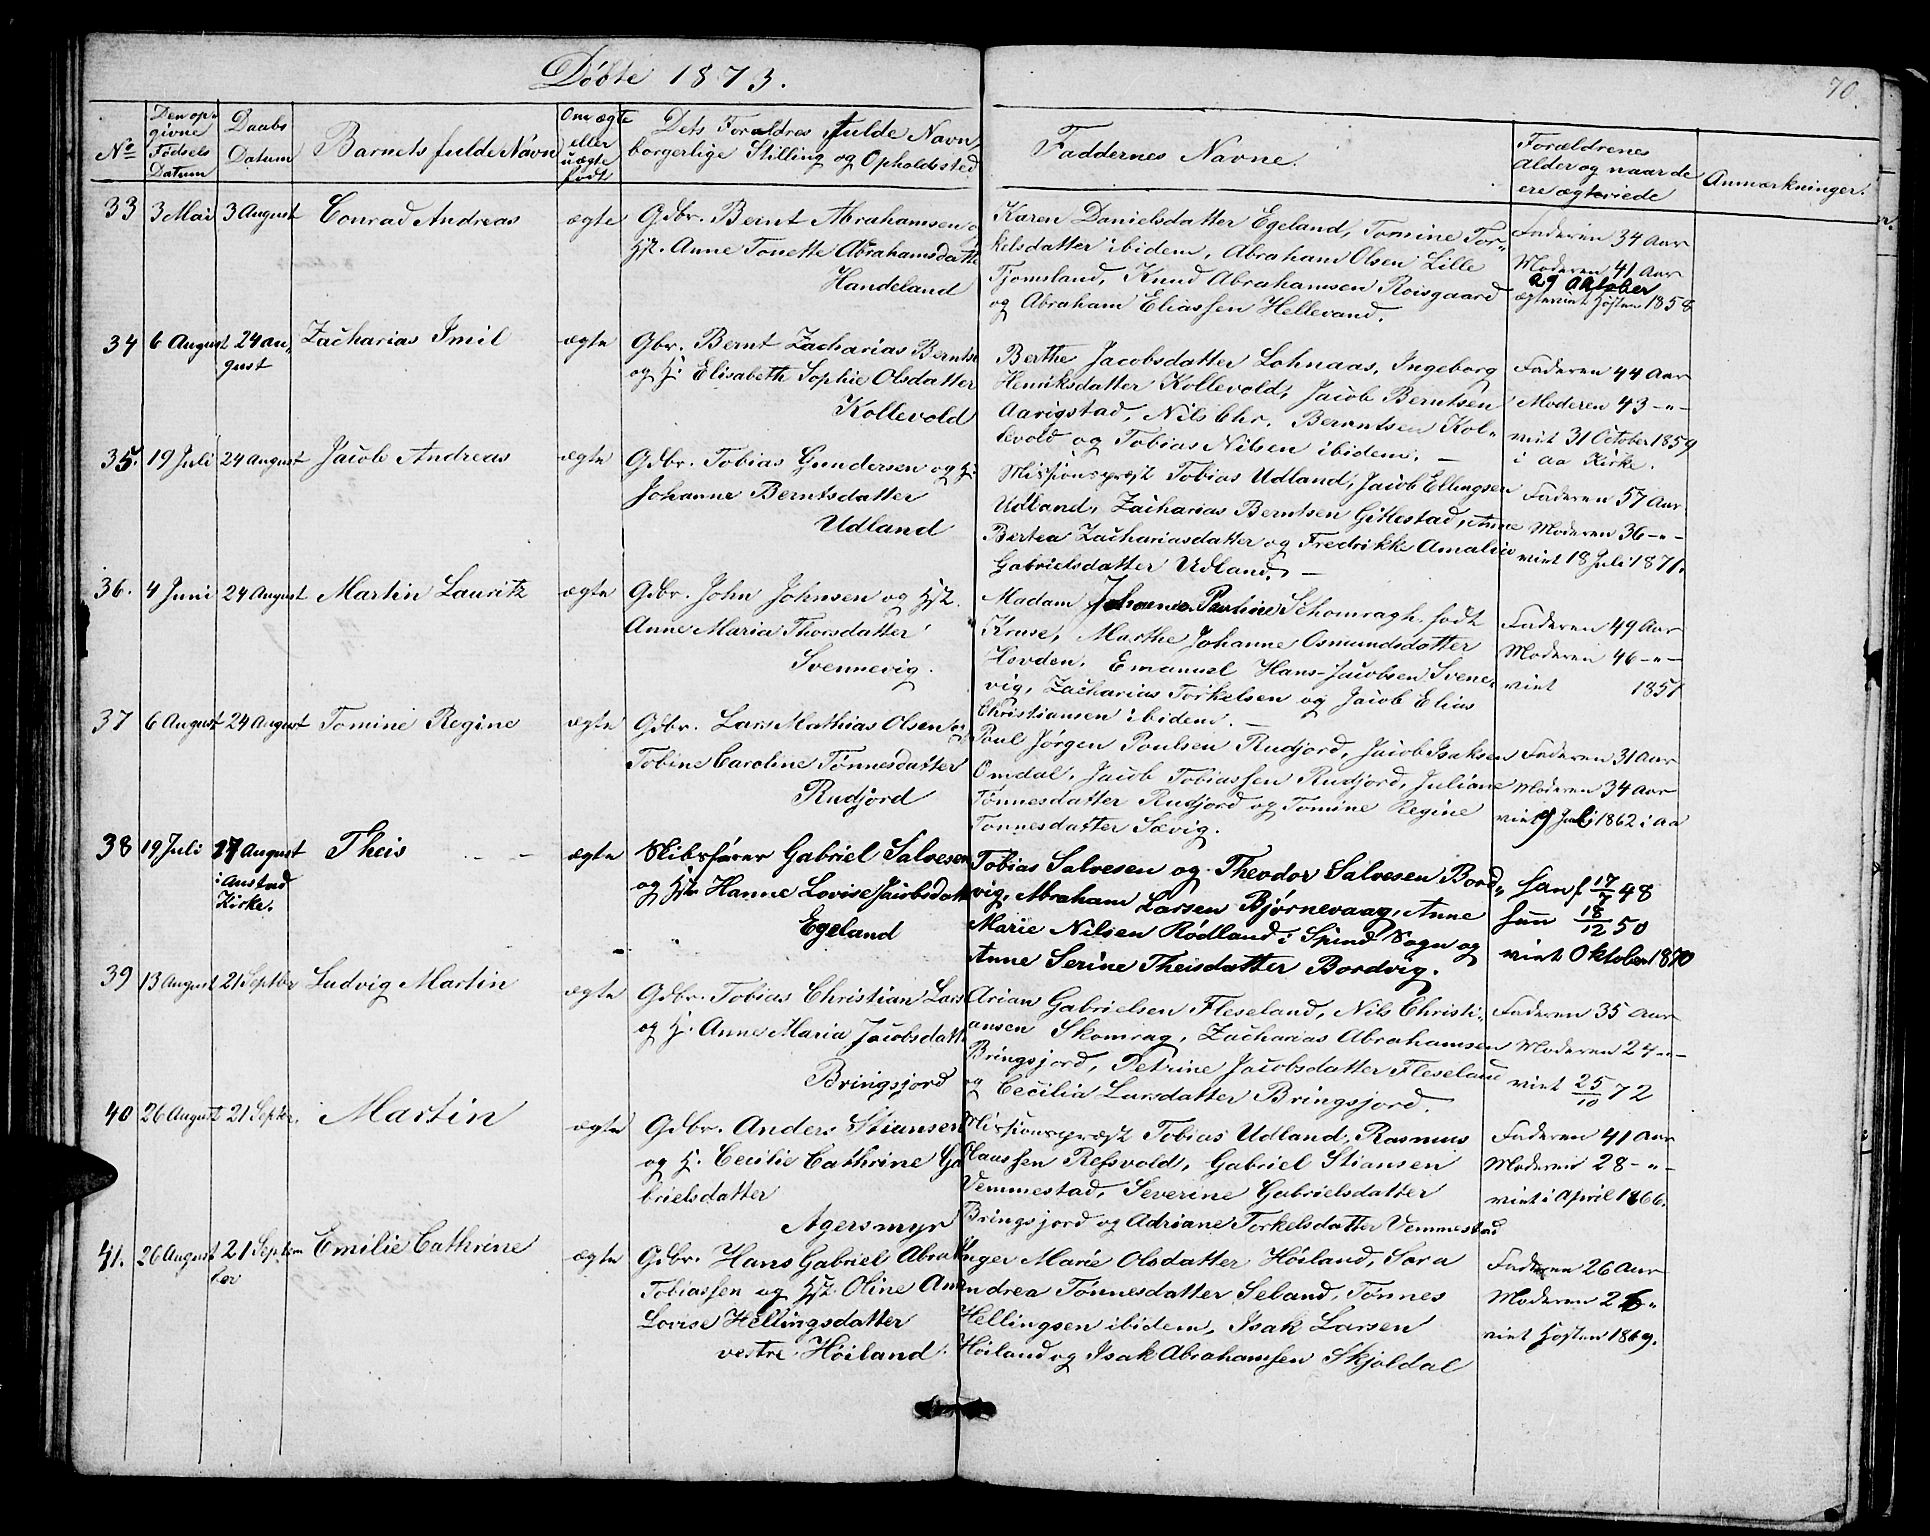 Döbte 1873.
70.
No
Den op-
givne
Fødsels
Datum
Daabs
Datum
Barnets fulde Navn
Om ægte
eller
uægte
født
Dets Forældres fulde Navn,
borgerlige Stilling og Opholdssted
Faddernes Navne.
Forældrenes
Alder og naar de
ere ægteviede
Anmærkninger.
33 3 Mai 3 August Conrad Andreas ægte
Gdbr. Bernt Abrahamsen o
Hst. Anne Tonette Abrahamsdatte
Handeland
Karen Danielsdatter Egeland, Tomine Tor-
kelsdatter ibidem, Abraham Olsen Lille
Tjomsland, Knud Abrahamsen Roisgaard
og Abraham Eliassen Hellevand.
Faderen 34 Aar
Moderen 41 Aar
29 Oktober
ægteviet Høsten 1858
34 6 August 24 Au-
gust
Zacharias Imil ægte
Gbr. Bernt Zacharias Bernts
og H. Elisabeth Sophie Olsdatter
Kollevold
Berthe Jacobsdatter Lohnaas, Ingeborg
Henriksdatter Kollevold, Jacob Berntsen
Aarigstad, Nils Chr. Berentsen Kol-
levold og Tobias Nilsen ibidem. —
Faderen 44 Aar
Moderen 43 -"-
viet 31 October 1859
i Aa Kirke.
35. 19 Juli 24 August Jacob Andreas ægte
Gdbr. Tobias Gundersen og H.
Johanne Berntsdatter
Udland
Missionspræst Tobias Udland, Jacob Ellingsen
Udland, Zacharias Berntsen Gitlestad, Anne
Bertea Zachariasdatter og Fredrikke Amalie
Gabrielsdatter Udland. —
Faderen 57 Aar
Moderen 36 -"-
viet 18 Juli 1871.
36. 4 Juni 24 August Martin Lauritz ægte
Gdbr. John Johnsen og Hst.
Anne Maria Thorsdatter
Svennevig.
Madam Johanne Pauline Schomragh født
Kruse, Marthe Johanne Osmundsdatter
Hovden, Emanuel Hans-Jacobsen Svene-
vig, Zacharias Torkelsen og Jacob Elias
Christiansen ibidem. —
Faderen 49 Aar
Moderen 46 -"-
viet 1851
37 6 August 24 August Tomine Regine ægte
Gdbr. Lars Mathias Olsen og
Tobine Caroline Tönnesdatter
Rudjord
Poul Jörgen Poulsen Rudjord, Jacob Isaksen
Omdal, Jacob Tobiassen Rudjord, Juliane
Tönnesdatter Rudjord og Tomine Regine
Tonnesdatter Sævig.
Faderen 31 Aar
Moderen 34 Aar
viet 9 Juli 1862 i Aa
38 19 Juli 27 August
i Austad
Kirke.
Theis ægte
Skibsfører Gabriel Salvesen
og Hst. Hanne Lovise Jacobsdatt
Egeland
Tobias Salvesen og Theodor Salvesen Bord-
vig, Abraham Larsen Björnevaag, Anne
Marie Nilsen Rödland i Spind Sogn og
Anne Serine Theisdatter Bordvig.
han f 17/7 48
hun 18/12 50
viet Oktober 1870
39 13 August 21 Septbr Ludvig Martin ægte
Gdbr. Tobias Christian Lars
og H. Anne Maria Jacobsdatt
Bringsjord
Arian Gabrielsen Fleseland, Nils Christi-
ansen Skomrag, Zacharias Abrahamsen
Bringsjord, Petrine Jacobsdatter Fleseland
og Cecilia Larsdatter Bringsjord.
Faderen 35 Aar
Moderen 24 -"-
viet 25/10 72
40 26 August 21 Septbr. Martin ægte
Gdbr. Anders Stiansen
og H. Cecilie Cathrine Ga
brielsdatter
Agersmyr
Missionspræst Tobias Udland, Rasmus
Olaussen Refsvold, Gabriel Stiansen
Vemmestad, Severine Gabrielsdatter
Bringsjord og Adriane Torkelsdatter Vemmestad
Faderen 41 Aar
Moderen 28 -"-
viet i April 1866.
41. 26 August 21 Septem
ber
Emilie Cathrine ægte
Gdbr. Hans Gabriel Abrah
Tobiassen og Hst. Oline Ann
Lovise Hellingsdatter
vestre Höiland.
Inger Marie Olsdatter Höiland, Sara
Andrea Tönnesdatter Seland, Tönnes
Hellingsen ibidem, Isak Larsen
Höiland og Isak Abrahamsen Skjoldal
Faderen 26 Aar
Moderen 26 "
viet Høsten 1869.